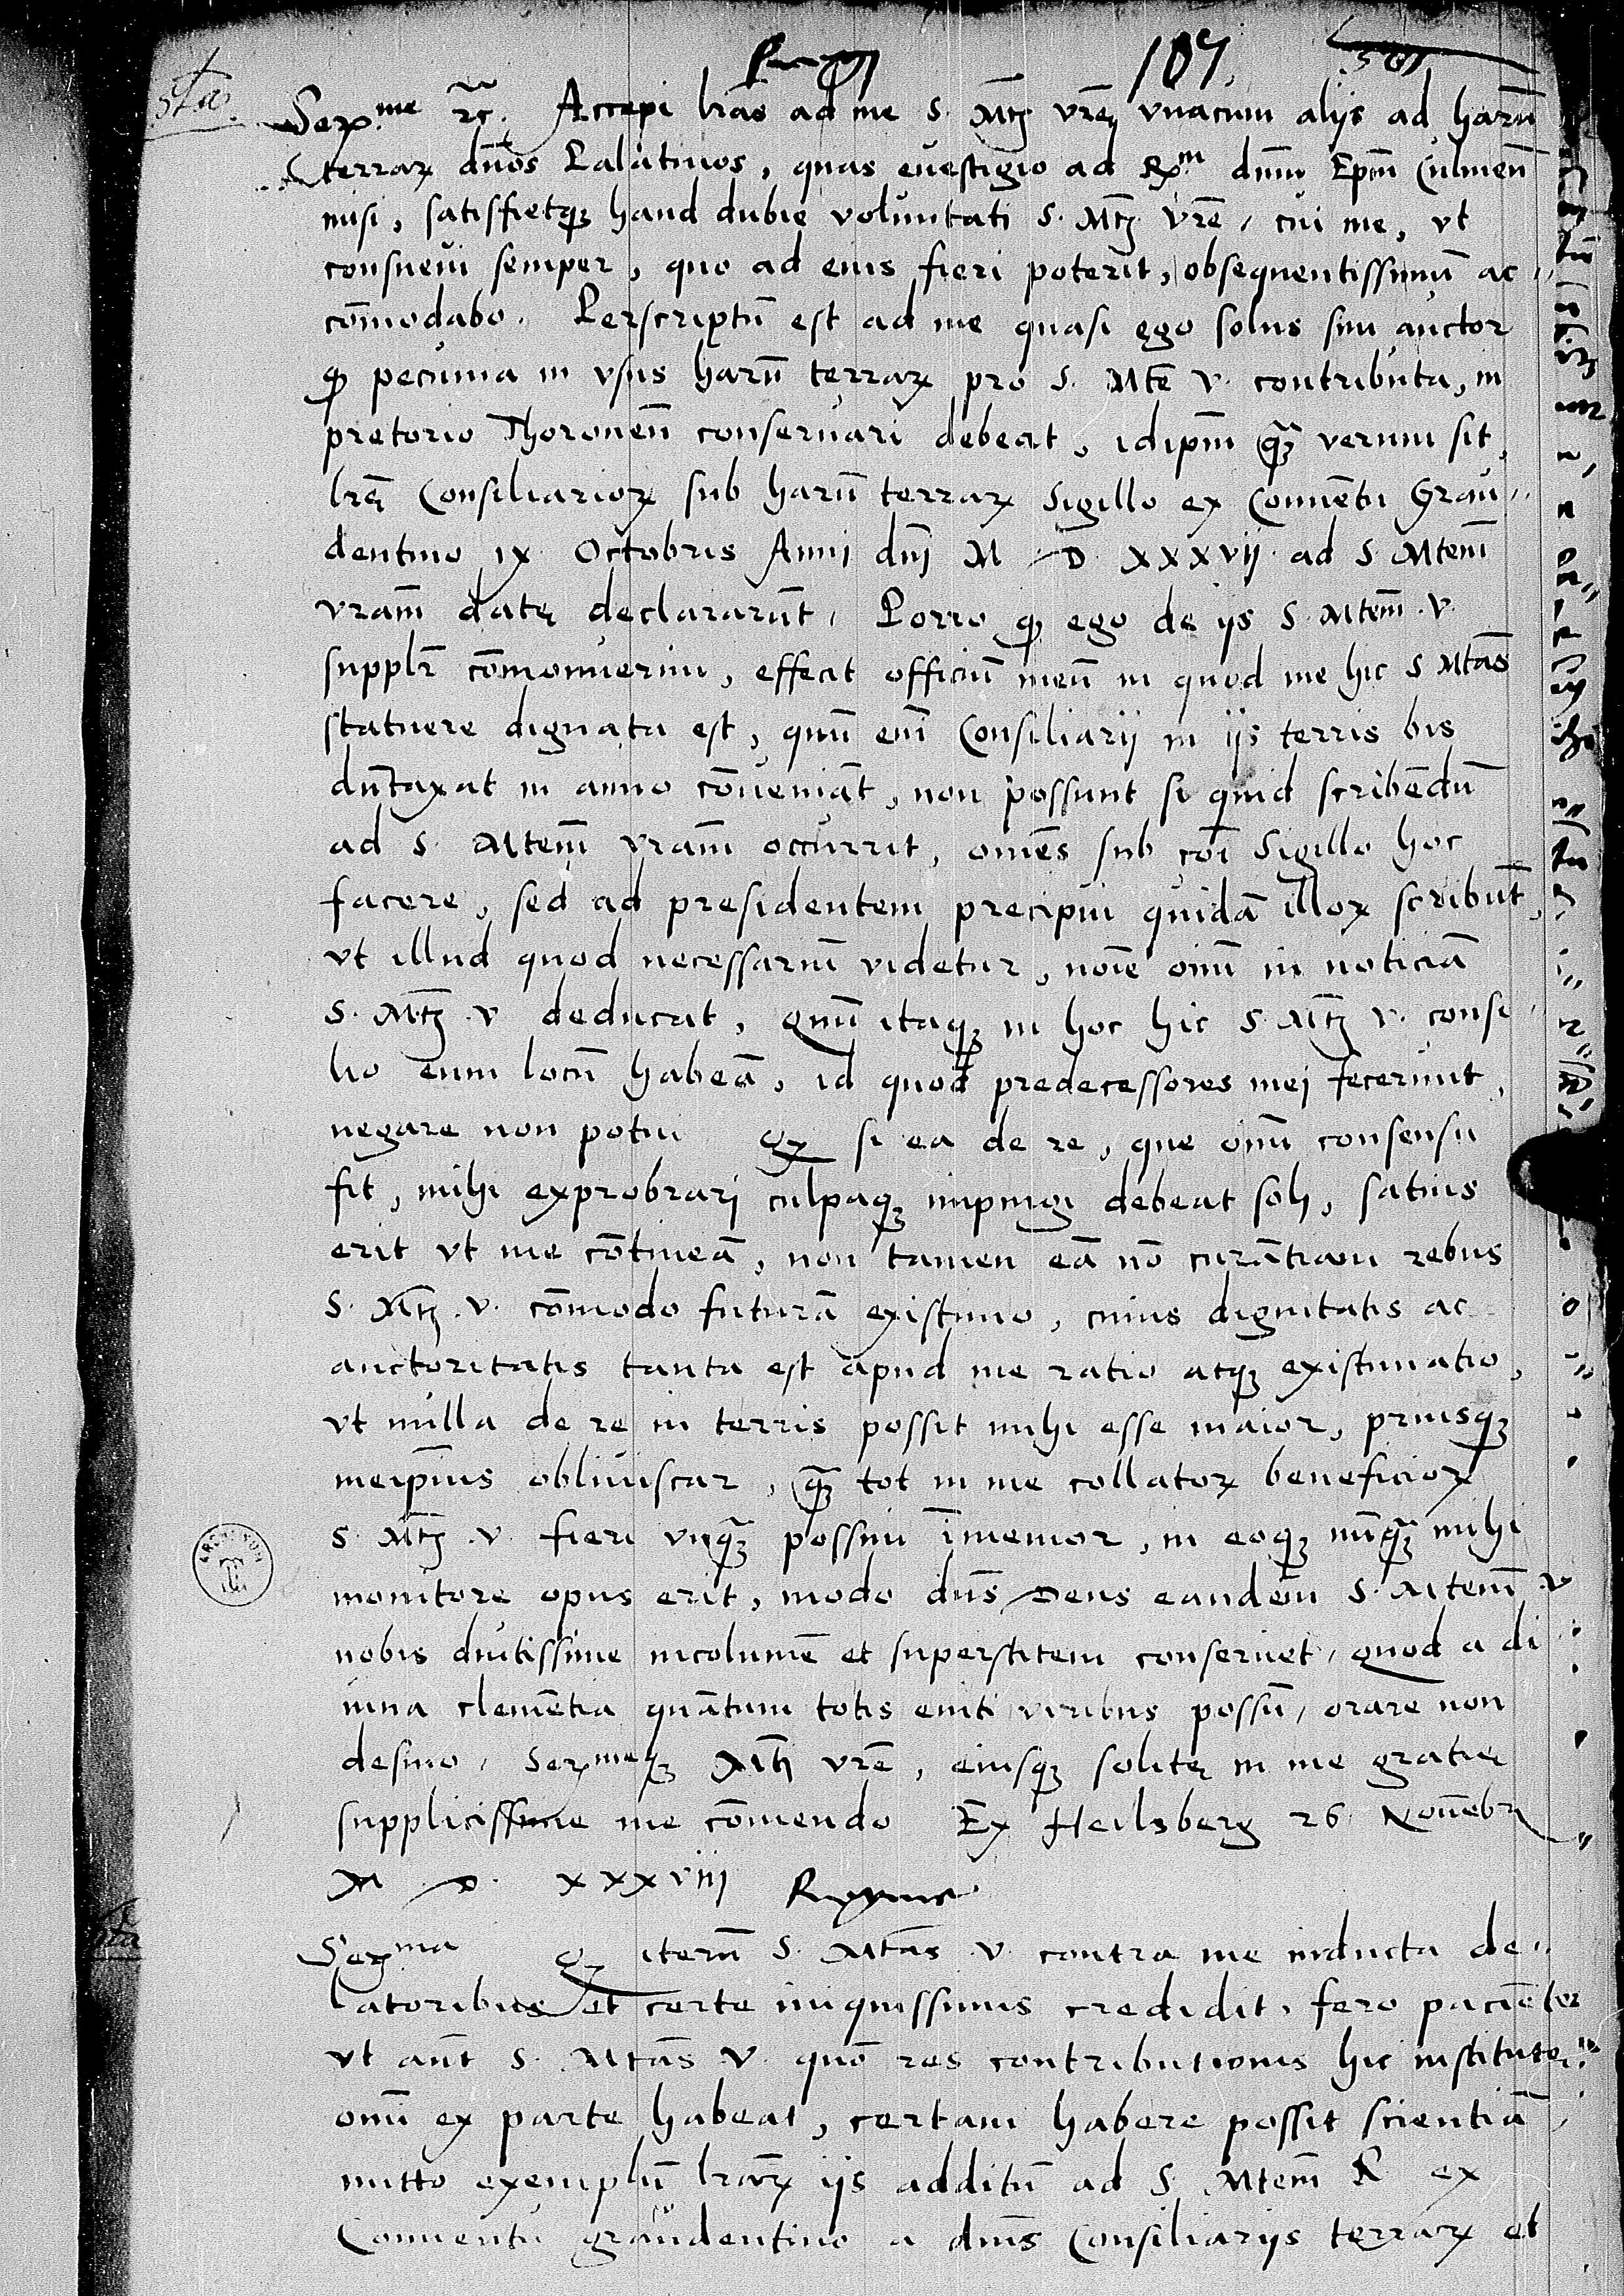 Regi 107
Ser.me etc. Accepi lr̃as ad me S. Mtj vr̃ę vnacum alijs ad harũ
terrarꝝ dños Palatinos, quas euestigio ad Rx.m dnũ Ep̃m Culmen̄
misi, satisfietqꝫ haud dubie voluntati S. Mtj vrẽ, cui me, vt
consueui semper, quo ad eius fieri poterit, obsequentissimũ ac„
cõmodabo. Perscriptũ est ad me quasi ego solus sim auctor
ꝙ pecunia in vsus harũ terrarꝝ pro S. Mte v. contributa, in
pretorio Thoronen̄ conseruari debeat, idipm̃ q̃ꝫ verum sit,
lrę̃ Consiliariorꝝ sub harũ terrarꝝ Sigillo ex Conuẽtu Grau„
dentino ix Octobris Anni dnj̃ M D xxxvij ad S Mtem̃
vram̃ datę declararũt, Porro ꝙ ego de ijs S. Mtem̃ v.
supplr̃ cõmonuerim, effecit officiũ meũ in quod me hic S Mtas̃
statuere dignata est, quũ em̃ Consiliarij in ijs terris bis
dũtaxat in anno cõueniãt, non possunt si quid scribẽdũ
ad S. Mtem̃ vram̃ occurrit, omẽs sub coĩ Sigillo hoc
facere, sed ad presidentem precipui quidã illorꝝ scribũt,
vt illud quod necessariũ videtur, noĩe oim̃ in noticiã
S. Mtj̃ v deducat, Quũ itaqꝫ in hoc hic S Mtj̃ v. consi„
lio eum locũ habeã, id quod predecessores mej fecerunt,
negare non potui Qꝫ si ea de re, que oim̃ consensu
fit, mihi exprobrarj culpaqꝫ impingi debeat soli, satius
erit vt me cõtineã, non tamen eã nõ curãtiam rebus
S. Mtj̃ v. cõmodo futurã existimo, cuius dignitatis ac
auctoritatis tanta est apud me ratio atqꝫ existimatio,
vt nulla de re in terris possit mihi esse maior, priusqꝫ
meip̃ius obliuiscar, q̃ꝫ tot in me collatorꝝ beneficiorꝝ
S. Mtj̃ v. fieri vnq̃ꝫ possim ĩmemor, in eoqꝫ nũq̃ꝫ mihi
monitore opus erit, modo dñs Deus eandem S. Mtem̃ v
nobis diutissime incolumẽ et superstitem conseruet, quod a di
uina clemẽtia quãtum totis eniti viribus possũ, orare non
desino, Ser.meqꝫ Mtj vrẽ, eiusqꝫ solitę in me gratię
supplicissime me cõmendo Ex Heilsberg 26 Nouẽbr̃
M D xxxviij Reginę
Ser.ma Qꝫ iterũ S. Mtas̃ v. contra me inducta de„
latoribus et certe iniquissimis credidit, fero paciẽter
vt aut̃ S. Mtas̃ v. quõ res contributionis hic institutę
oĩm ex parte habeat, certam habere possit scientiã,
mitto exemplũ lr̃arꝝ ijs additũ ad S Mtem̃ R ex
Conuentu graudentino a dnis̃ Consiliarijs terrarꝝ et